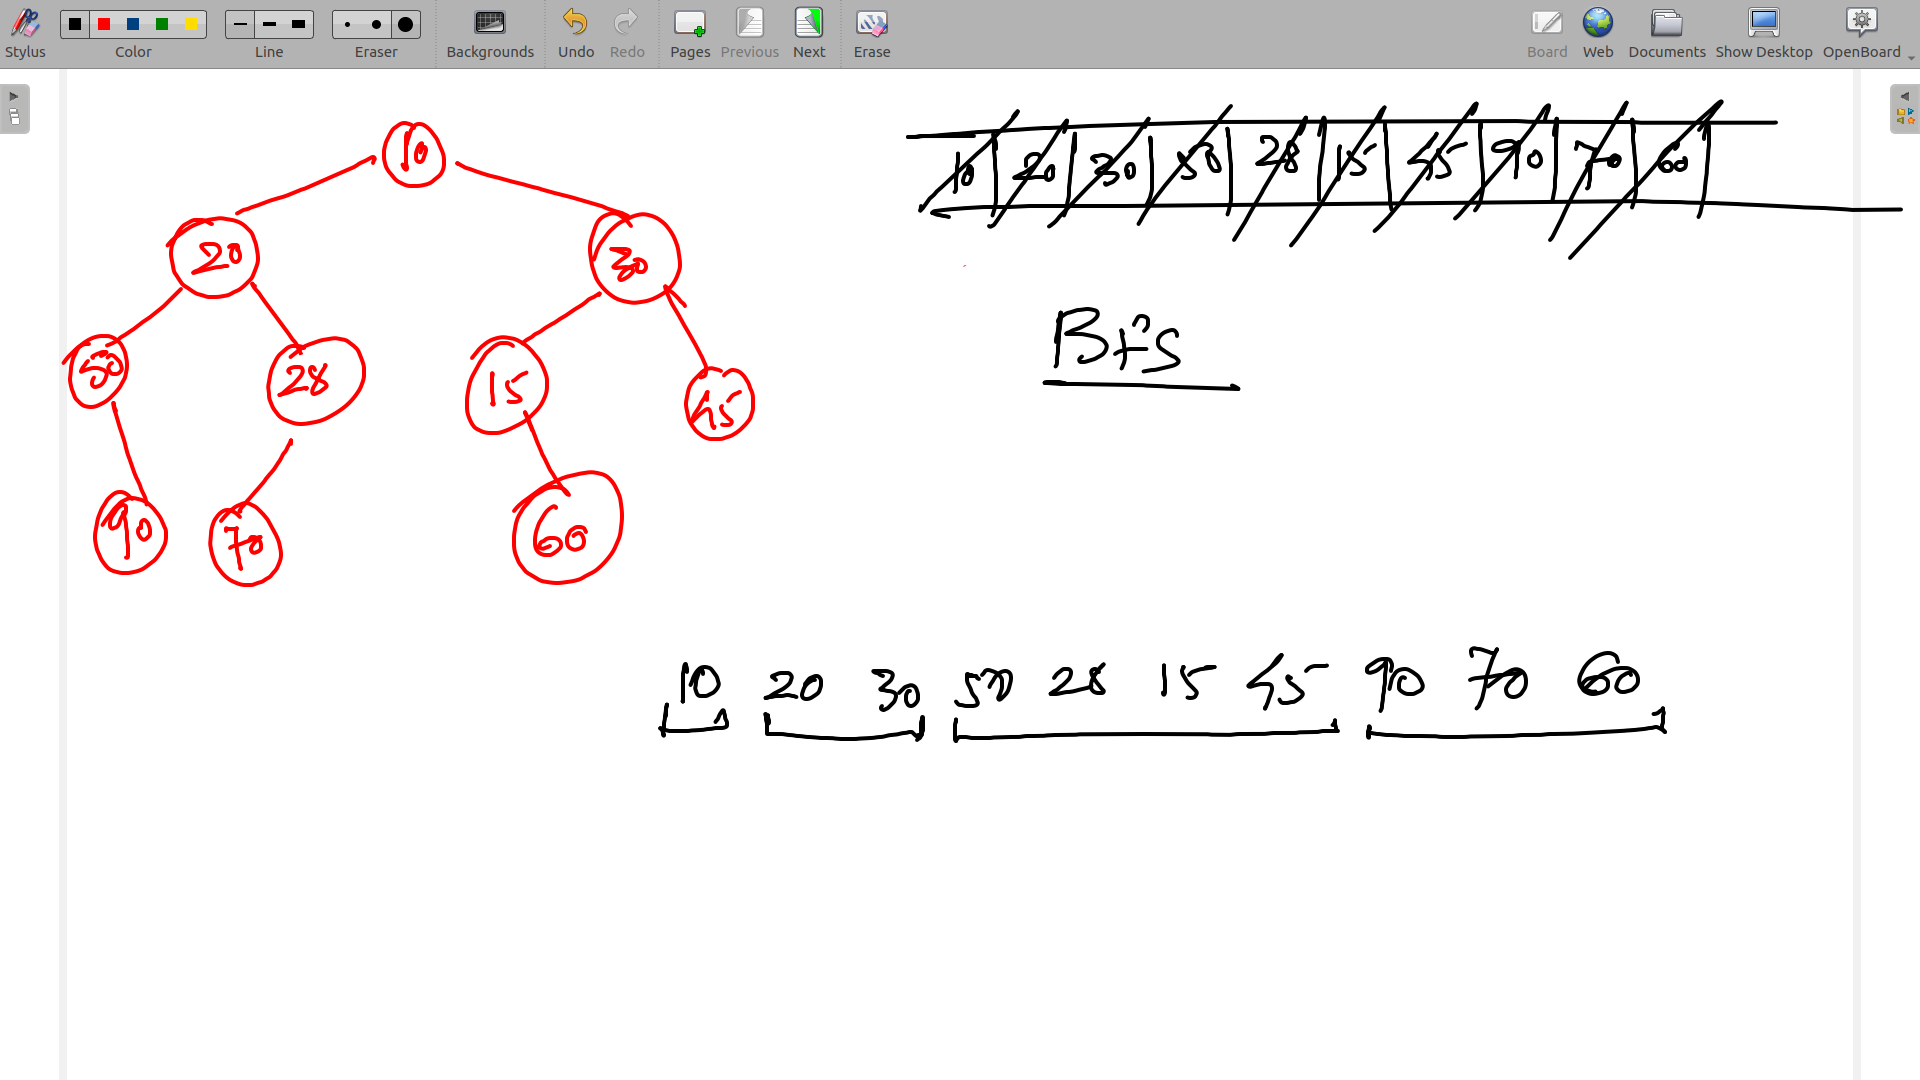 Stylus Color Line Eraser Backgrounds Undo Redo Pages Previous Next Erase Board Web Documents Show Desktop OpenBoard
10
20 30
50 28 15 45
90 70 60
10 20 30 50 28 15 45 90 70 60
Bfs
10 20 30 50 28 15 45 90 70 60